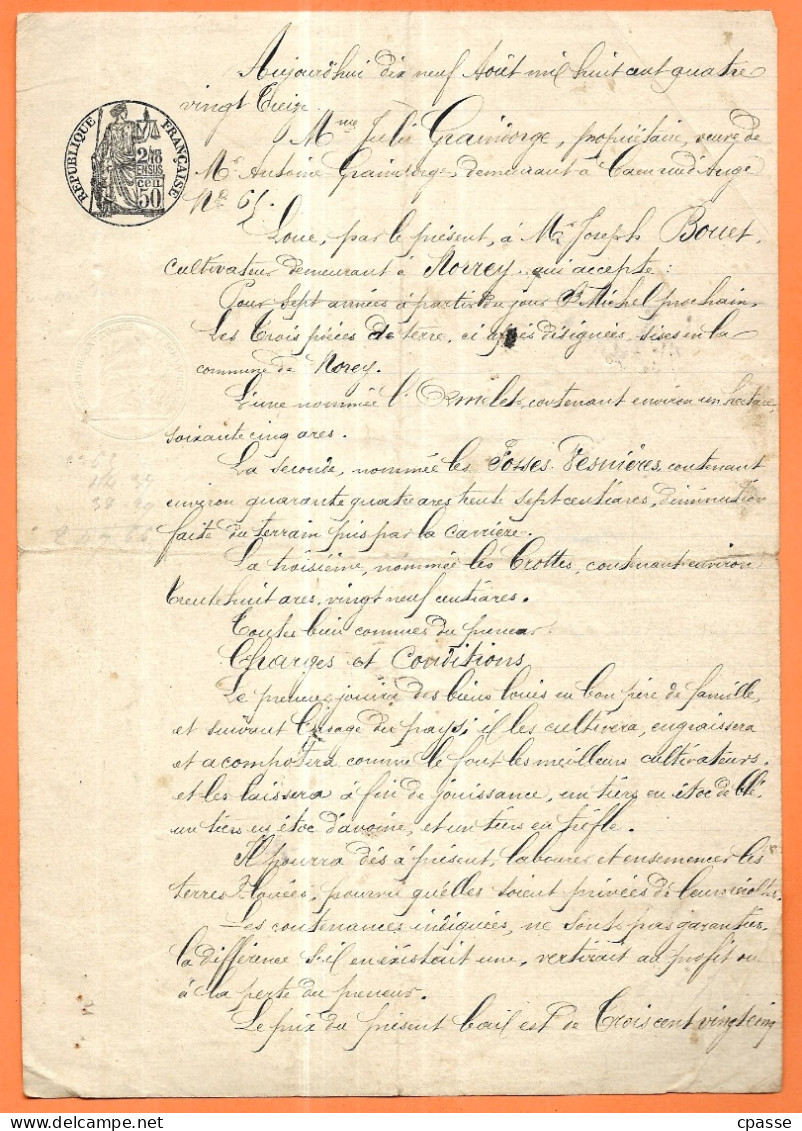 Aujourd'hui dix neuf Août mil huit cent quatre
vingt treize.
Mme Julie Graindorge, propriétaire, veuve de
Mr Antoine Graindorge, demeurant à Caen rue d'Auge
No 65.
Loue, par le présent, à Mr Joseph Bouet,
cultivateur demeurant à Norrey, qui accepte:
Pour sept années à partir du jour St Michel prochain,
Les trois pièces de terre, ci après désignées, sises en la
commune de Norey.
L'une nommée l' contenant environ un hectare,
soixante cinq ares.
La seconde, nommée les Fosses Tesnières, contenant
environ quarante quatre ares trente sept centiares, diminution
faite du terrain pris par la carrière.
La troisième, nommée les Crottes, contenant environ
trente huit ares, vingt neuf centiares.
Toutes bien connues du preneur.
Charges et Conditions
Le preneur jouira des biens loués en bon père de famille,
et suivant l'usage du pays; il les cultivera, engraissera
et acompotera comme le font les meilleurs cultivateurs,
et les laissera à fin de jouissance, un tiers en étoc de blé
un tiers en étoc d'avoine, et un tiers en trèfle.
Il pourra dès à présent, labourer et ensemencer les
terres louées, pourvu qu'elles soient privées de leurs récoltes.
Les contenances indiquées, ne sont pas garanties,
la différence s'il en éxistait une, vertirait au profit ou
à la perte du preneur.
Le prix du présent bail est de trois cent vingt cinq
RÉPUBLIQUE FRANÇAISE
2/10
EN SUS
50 cen
cpasse